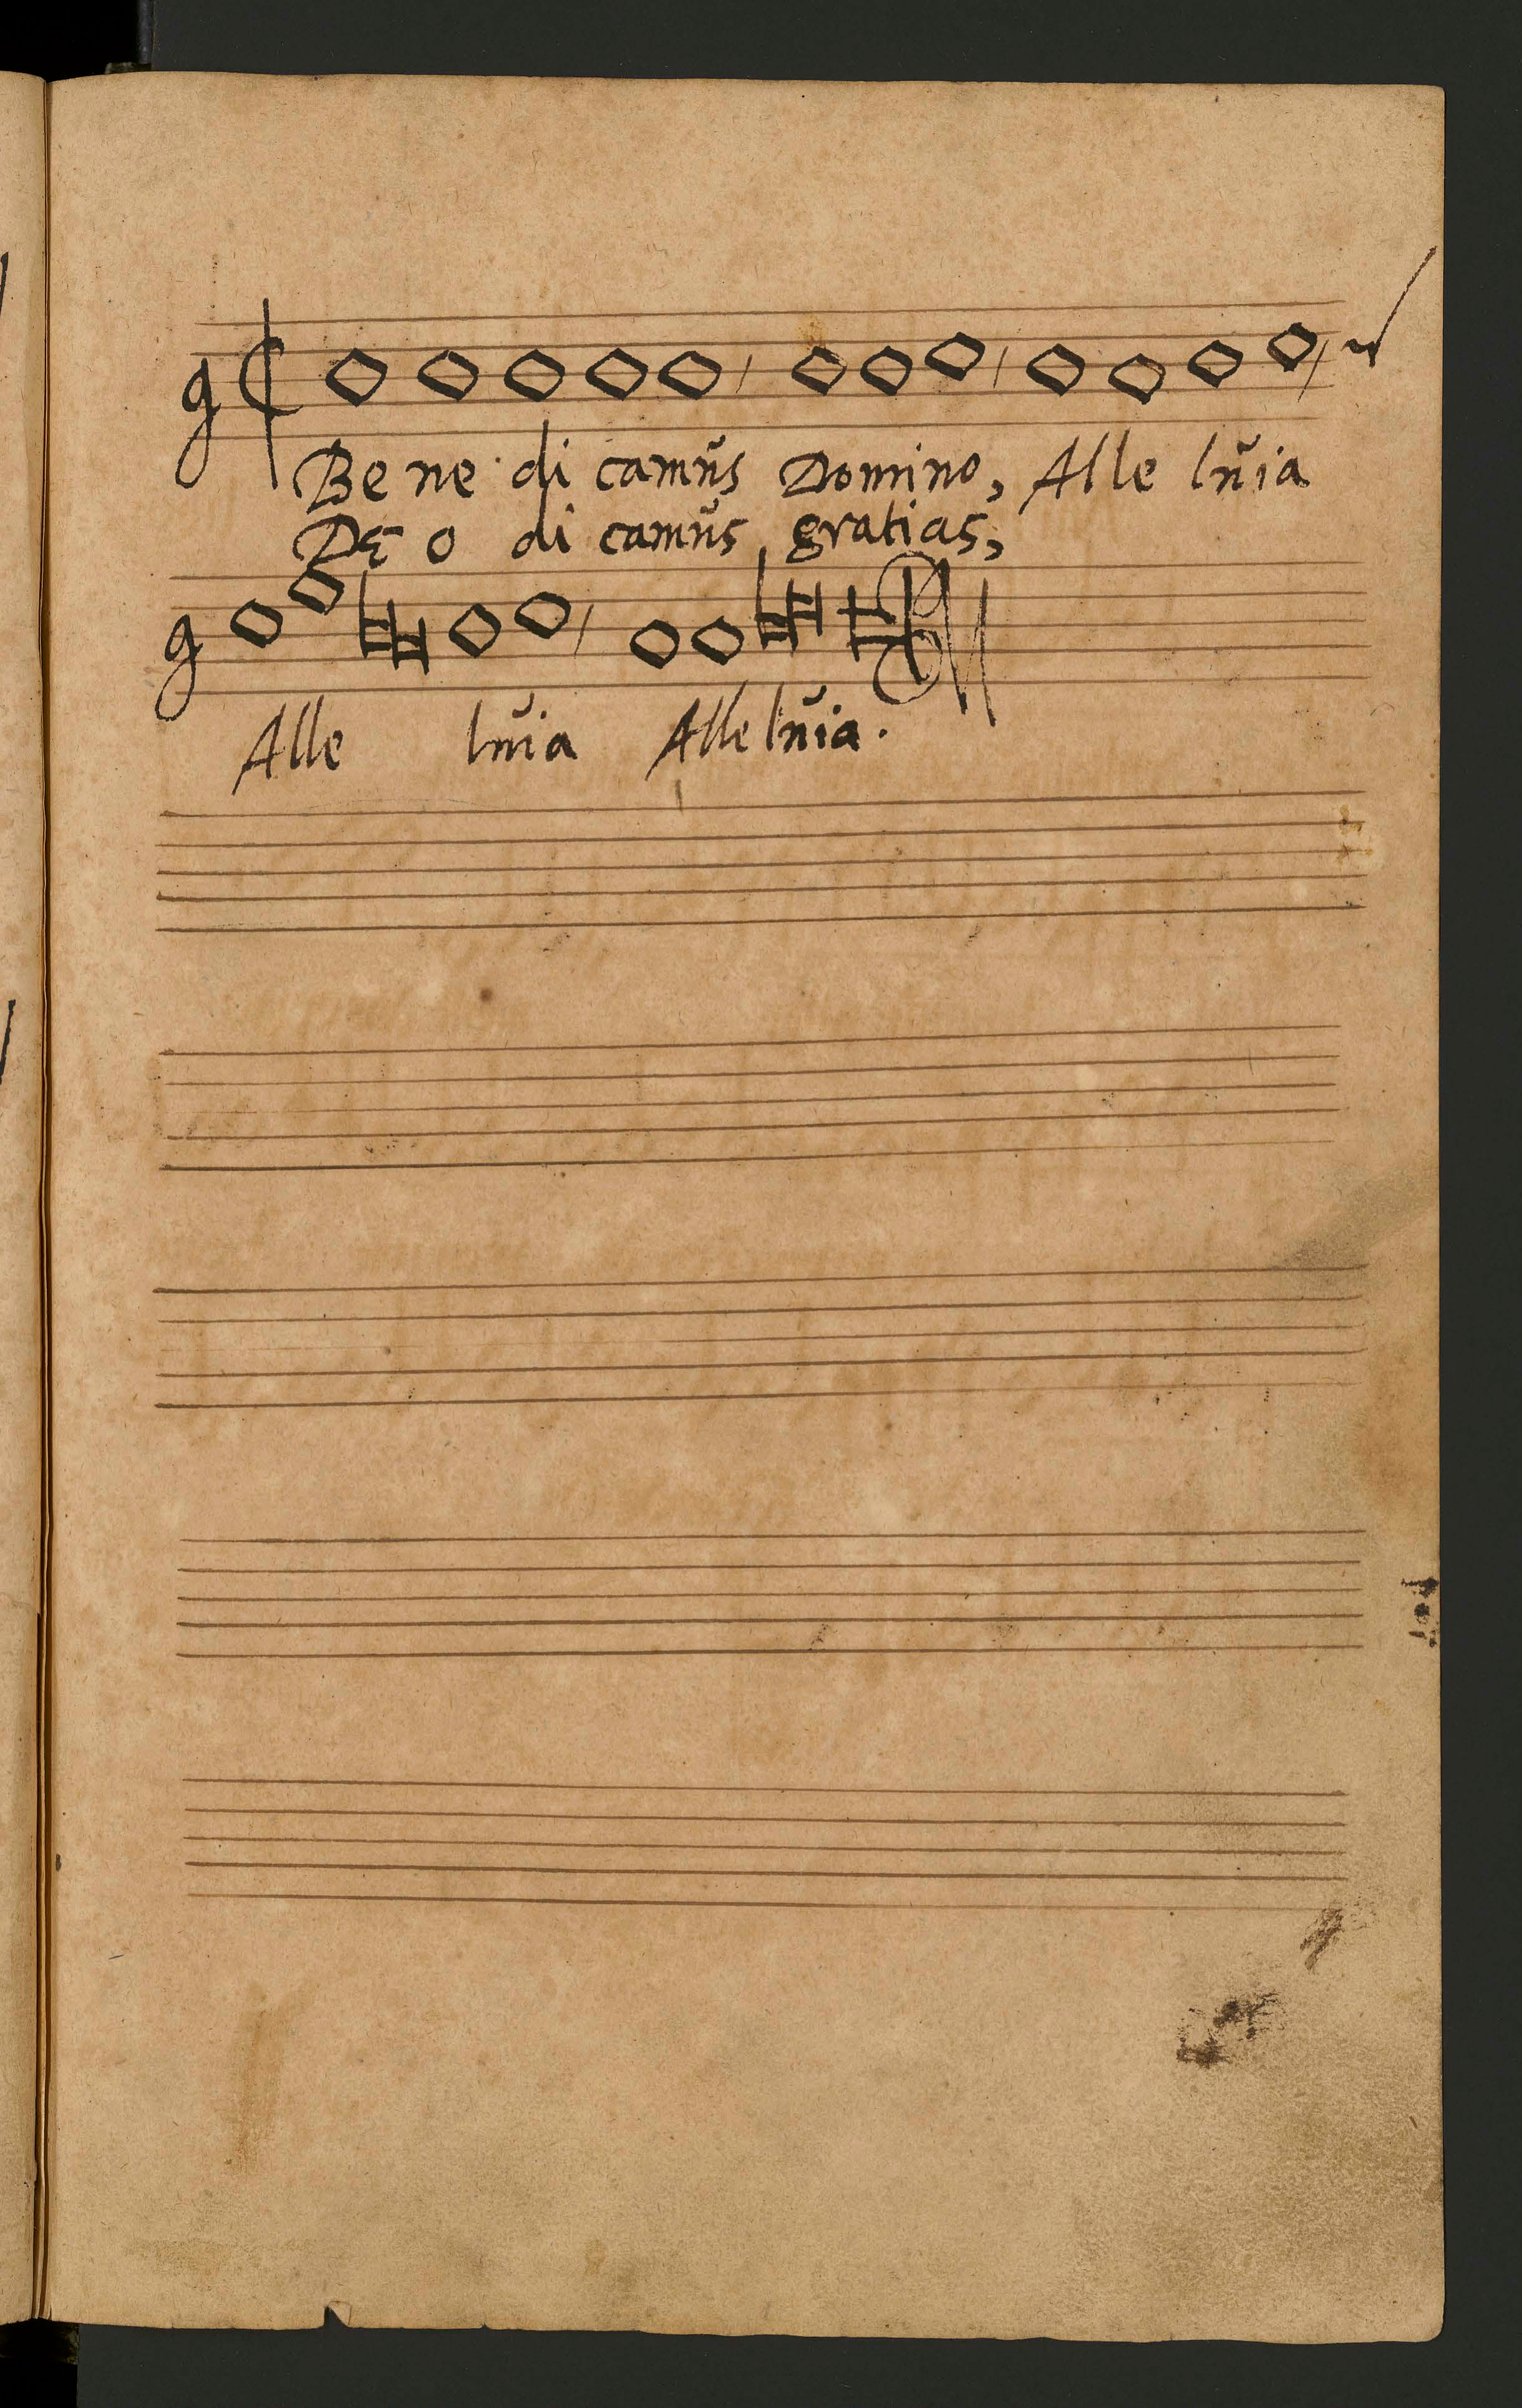 Be ne di camūs Domino, Alle lūia
DE o di camūs gratias,
Alle lūia Alle lūia.